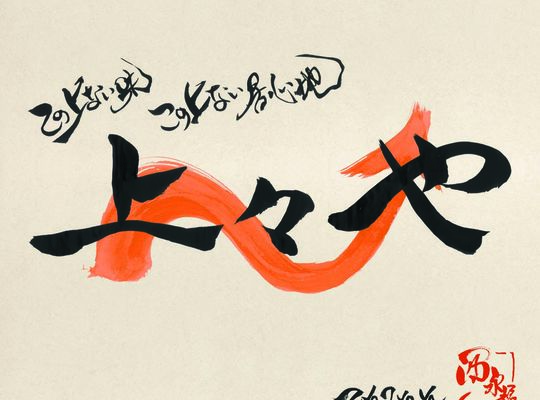 この上ない味 この上ない居心地
上々や